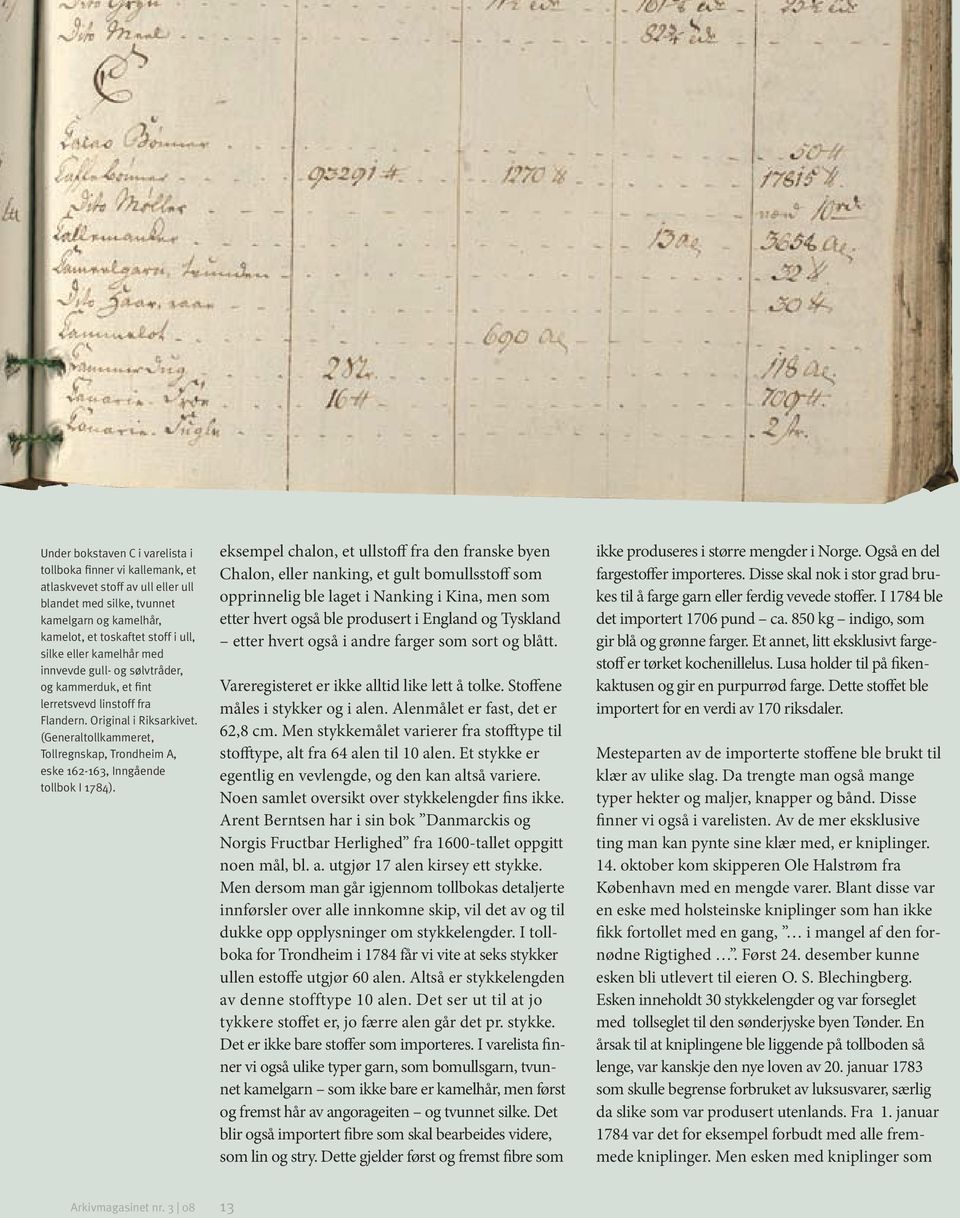 Dito Gryn
Dito Meel 82¾
C
Cacao Bønner 50 ℔
Caffebønner 93291 ℔ 1270 ℔ 17815 ℔
Dito Møller
Callemanker 13 Al. 3658 Al.
Cameelgarn, tvunden 32 ℔
Dito Haar, raar 30 ℔
Cammelot 690 Al.
Cammer Dug 118 Al.
Canarie Frøe 16 ℔ 709 ℔
Canarie Fugle 2 st.
Under bokstaven C i varelista i
tollboka finner vi kallemank, et
atlaskvevet stoff av ull eller ull
blandet med silke, tvunnet
kamelgarn og kamelhår,
kamelot, et toskaftet stoff i ull,
silke eller kamelhår med
innvevde gull- og sølvtråder,
og kammerduk, et fint
lerretsvevd linstoff fra
Flandern. Original i Riksarkivet.
(Generaltollkammeret,
Tollregnskap, Trondheim A,
eske 162-163, Inngående
tollbok I 1784).
eksempel chalon, et ullstoff fra den franske byen
Chalon, eller nanking, et gult bomullsstoff som
opprinnelig ble laget i Nanking i Kina, men som
etter hvert også ble produsert i England og Tyskland
– etter hvert også i andre farger som sort og blått.
Vareregisteret er ikke alltid like lett å tolke. Stoffene
måles i stykker og i alen. Alenmålet er fast, det er
62,8 cm. Men stykkemålet varierer fra stofftype til
stofftype, alt fra 64 alen til 10 alen. Et stykke er
egentlig en vevlengde, og den kan altså variere.
Noen samlet oversikt over stykkelengder fins ikke.
Arent Berntsen har i sin bok ”Danmarckis og
Norgis Fructbar Herlighed” fra 1600-tallet oppgitt
noen mål, bl. a. utgjør 17 alen kirsey ett stykke.
Men dersom man går igjennom tollbokas detaljerte
innførsler over alle innkomne skip, vil det av og til
dukke opp opplysninger om stykkelengder. I toll-
boka for Trondheim i 1784 får vi vite at seks stykker
ullen estoffe utgjør 60 alen. Altså er stykkelengden
av denne stofftype 10 alen. Det ser ut til at jo
tykkere stoffet er, jo færre alen går det pr. stykke.
Det er ikke bare stoffer som importeres. I varelista fin-
ner vi også ulike typer garn, som bomullsgarn, tvun-
net kamelgarn – som ikke bare er kamelhår, men først
og fremst hår av angorageiten – og tvunnet silke. Det
blir også importert fibre som skal bearbeides videre,
som lin og stry. Dette gjelder først og fremst fibre som
ikke produseres i større mengder i Norge. Også en del
fargestoffer importeres. Disse skal nok i stor grad bru-
kes til å farge garn eller ferdig vevede stoffer. I 1784 ble
det importert 1706 pund – ca. 850 kg – indigo, som
gir blå og grønne farger. Et annet, litt eksklusivt farge-
stoff er tørket kochenillelus. Lusa holder til på fiken-
kaktusen og gir en purpurrød farge. Dette stoffet ble
importert for en verdi av 170 riksdaler.
Mesteparten av de importerte stoffene ble brukt til
klær av ulike slag. Da trengte man også mange
typer hekter og maljer, knapper og bånd. Disse
finner vi også i varelisten. Av de mer eksklusive
ting man kan pynte sine klær med, er kniplinger.
14. oktober kom skipperen Ole Halstrøm fra
København med en mengde varer. Blant disse var
en eske med holsteinske kniplinger som han ikke
fikk fortollet med en gang, ”… i mangel af den for-
nødne Rigtighed …”. Først 24. desember kunne
esken bli utlevert til eieren O. S. Blechingberg.
Esken inneholdt 30 stykkelengder og var forseglet
med tollseglet til den sønderjyske byen Tønder. En
årsak til at kniplingene ble liggende på tollboden så
lenge, var kanskje den nye loven av 20. januar 1783
som skulle begrense forbruket av luksusvarer, særlig
da slike som var produsert utenlands. Fra 1. januar
1784 var det for eksempel forbudt med alle frem-
mede kniplinger. Men esken med kniplinger som
Arkivmagasinet nr. 3 | 08 13